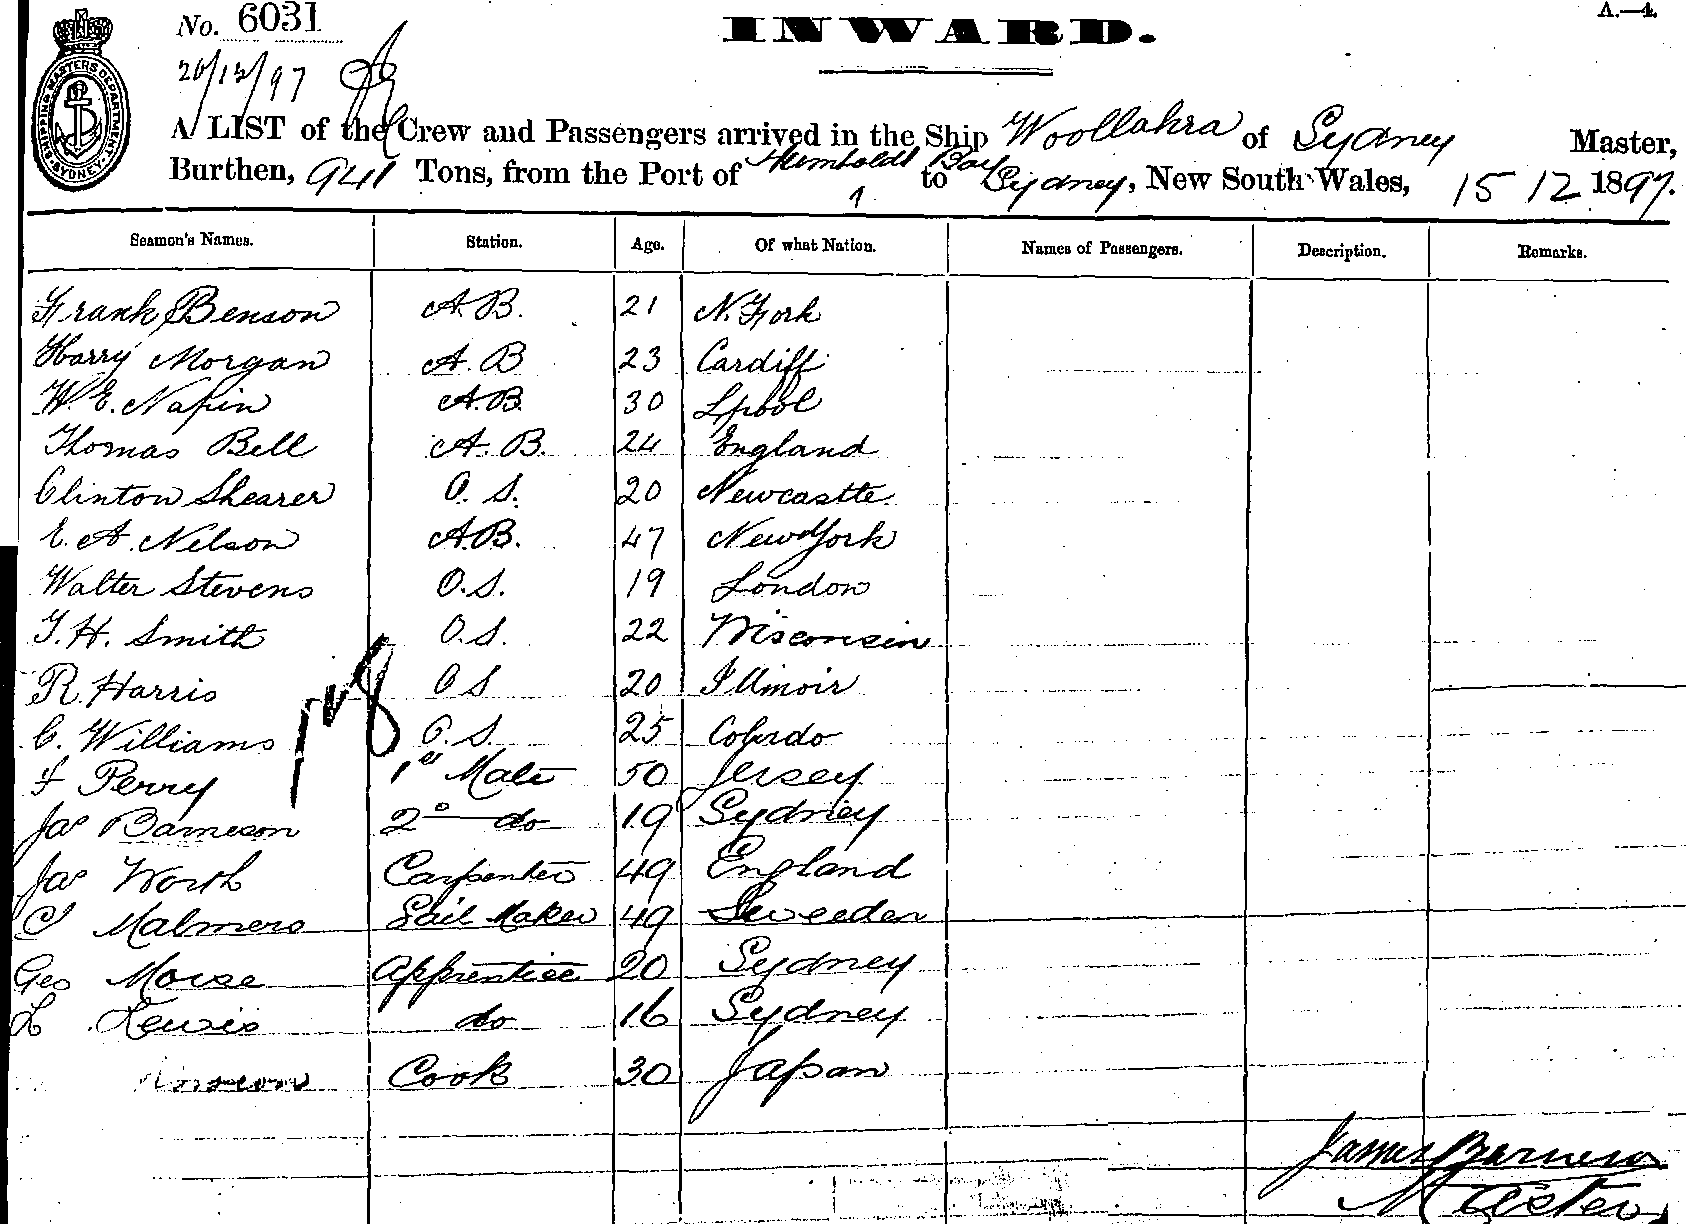 No. 6031 INWARD. A.—4.
20/12/97
SHIPPING MASTERS DEPARTMENT SYDNEY
A LIST of the Crew and Passengers arrived in the Ship Woollahra of Sydney Master,
Burthen, 941 Tons, from the Port of Humboldt Bay to Sydney, New South Wales, 15 12 1897.
Seamen's Names. Station. Age. Of what Nation. Names of Passengers. Description. Remarks.
Frank Benson A.B. 21 N. York
Harry Morgan A.B 23 Cardiff
W. E. Napier A.B. 30 Lpool
Thomas Bell A.B. 24 England
Clinton Shearer O.S. 20 Newcastle
E. A. Nelson A.B. 47 New York
Walter Stevens O.S. 19 London
T. H. Smith O.S. 22 Wisconsin
R. Harris O S 20 Illinoir
C. Williams O.S. 25 Colordo
Perry 1st Mate 50 Jersey
Jas Barneson 2o do 19 Sydney
Jas Worth Carpenter 49 England
C Malmero Sail Maker 49 Sweeden
Geo Morse Apprentice 20 Sydney
L Lewis do 16 Sydney
Cook 30 Japan
James Barneson
Master